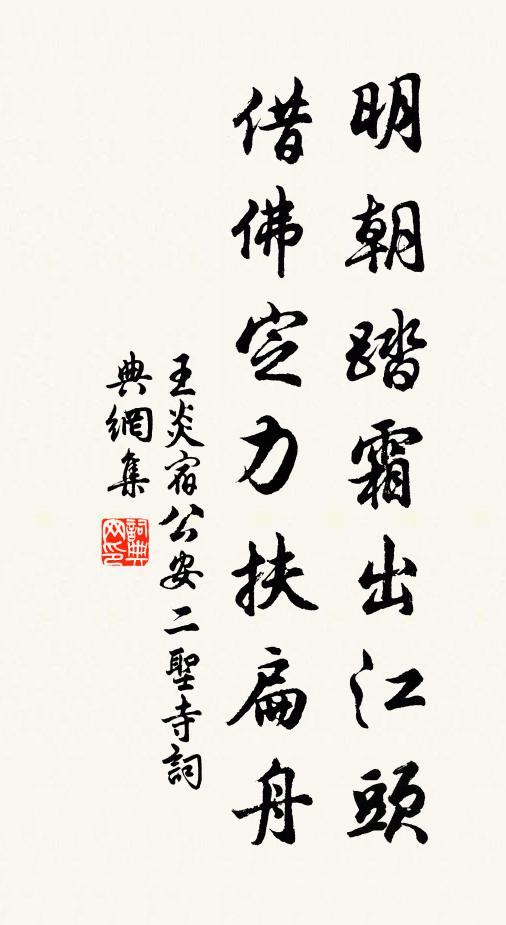 明朝踏霜出江頭
借佛定力扶扁舟
王炎宿公安二聖寺詞
典網集
詞典
网印